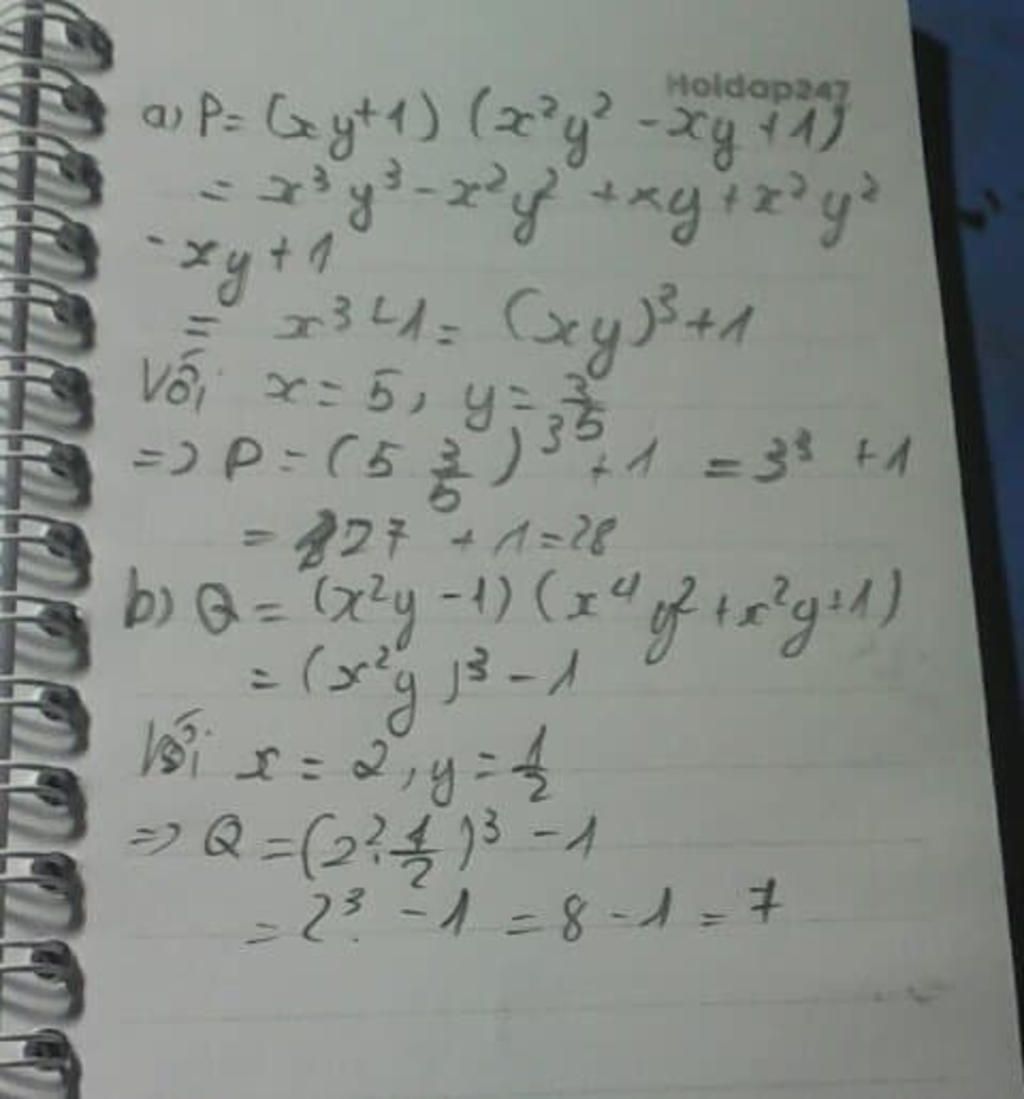 Hoidap247
a) P = (xy+1) (x²y² - xy + 1)
= x³y³ - x²y² + xy + x²y²
- xy + 1
= x³ + 1 = (xy)³ + 1
Với x = 5, y = 3/5
=> P = (5 3/5)³ + 1 = 3³ + 1
= 27 + 1 = 28
b) Q = (x²y - 1) (x⁴y² + x²y + 1)
= (x²y)³ - 1
Với x = 2, y = 1/2
=> Q = (2². 1/2)³ - 1
= 2³ - 1 = 8 - 1 = 7